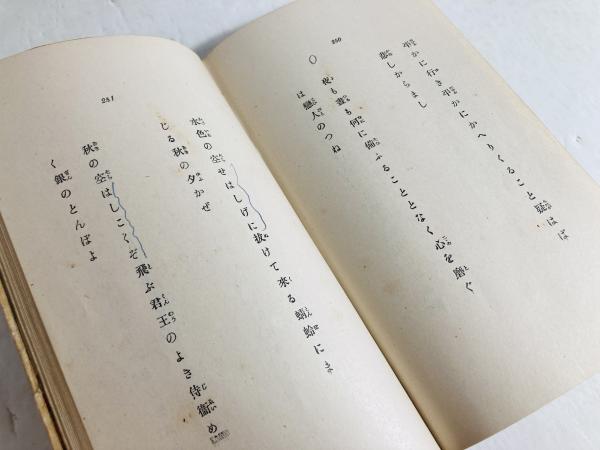 250
平かに行き平かにかへりくること疑はば
悲しからまし
夜も晝も何に備ふることとなく心を磨ぐ
は戀人のつね
251
水色の空せはしげに抜けて來る蜻蛉にま
じる秋の夕かぜ
秋の空はしこくぞ飛ぶ君王のよき侍衞め
く銀のとんぼよ